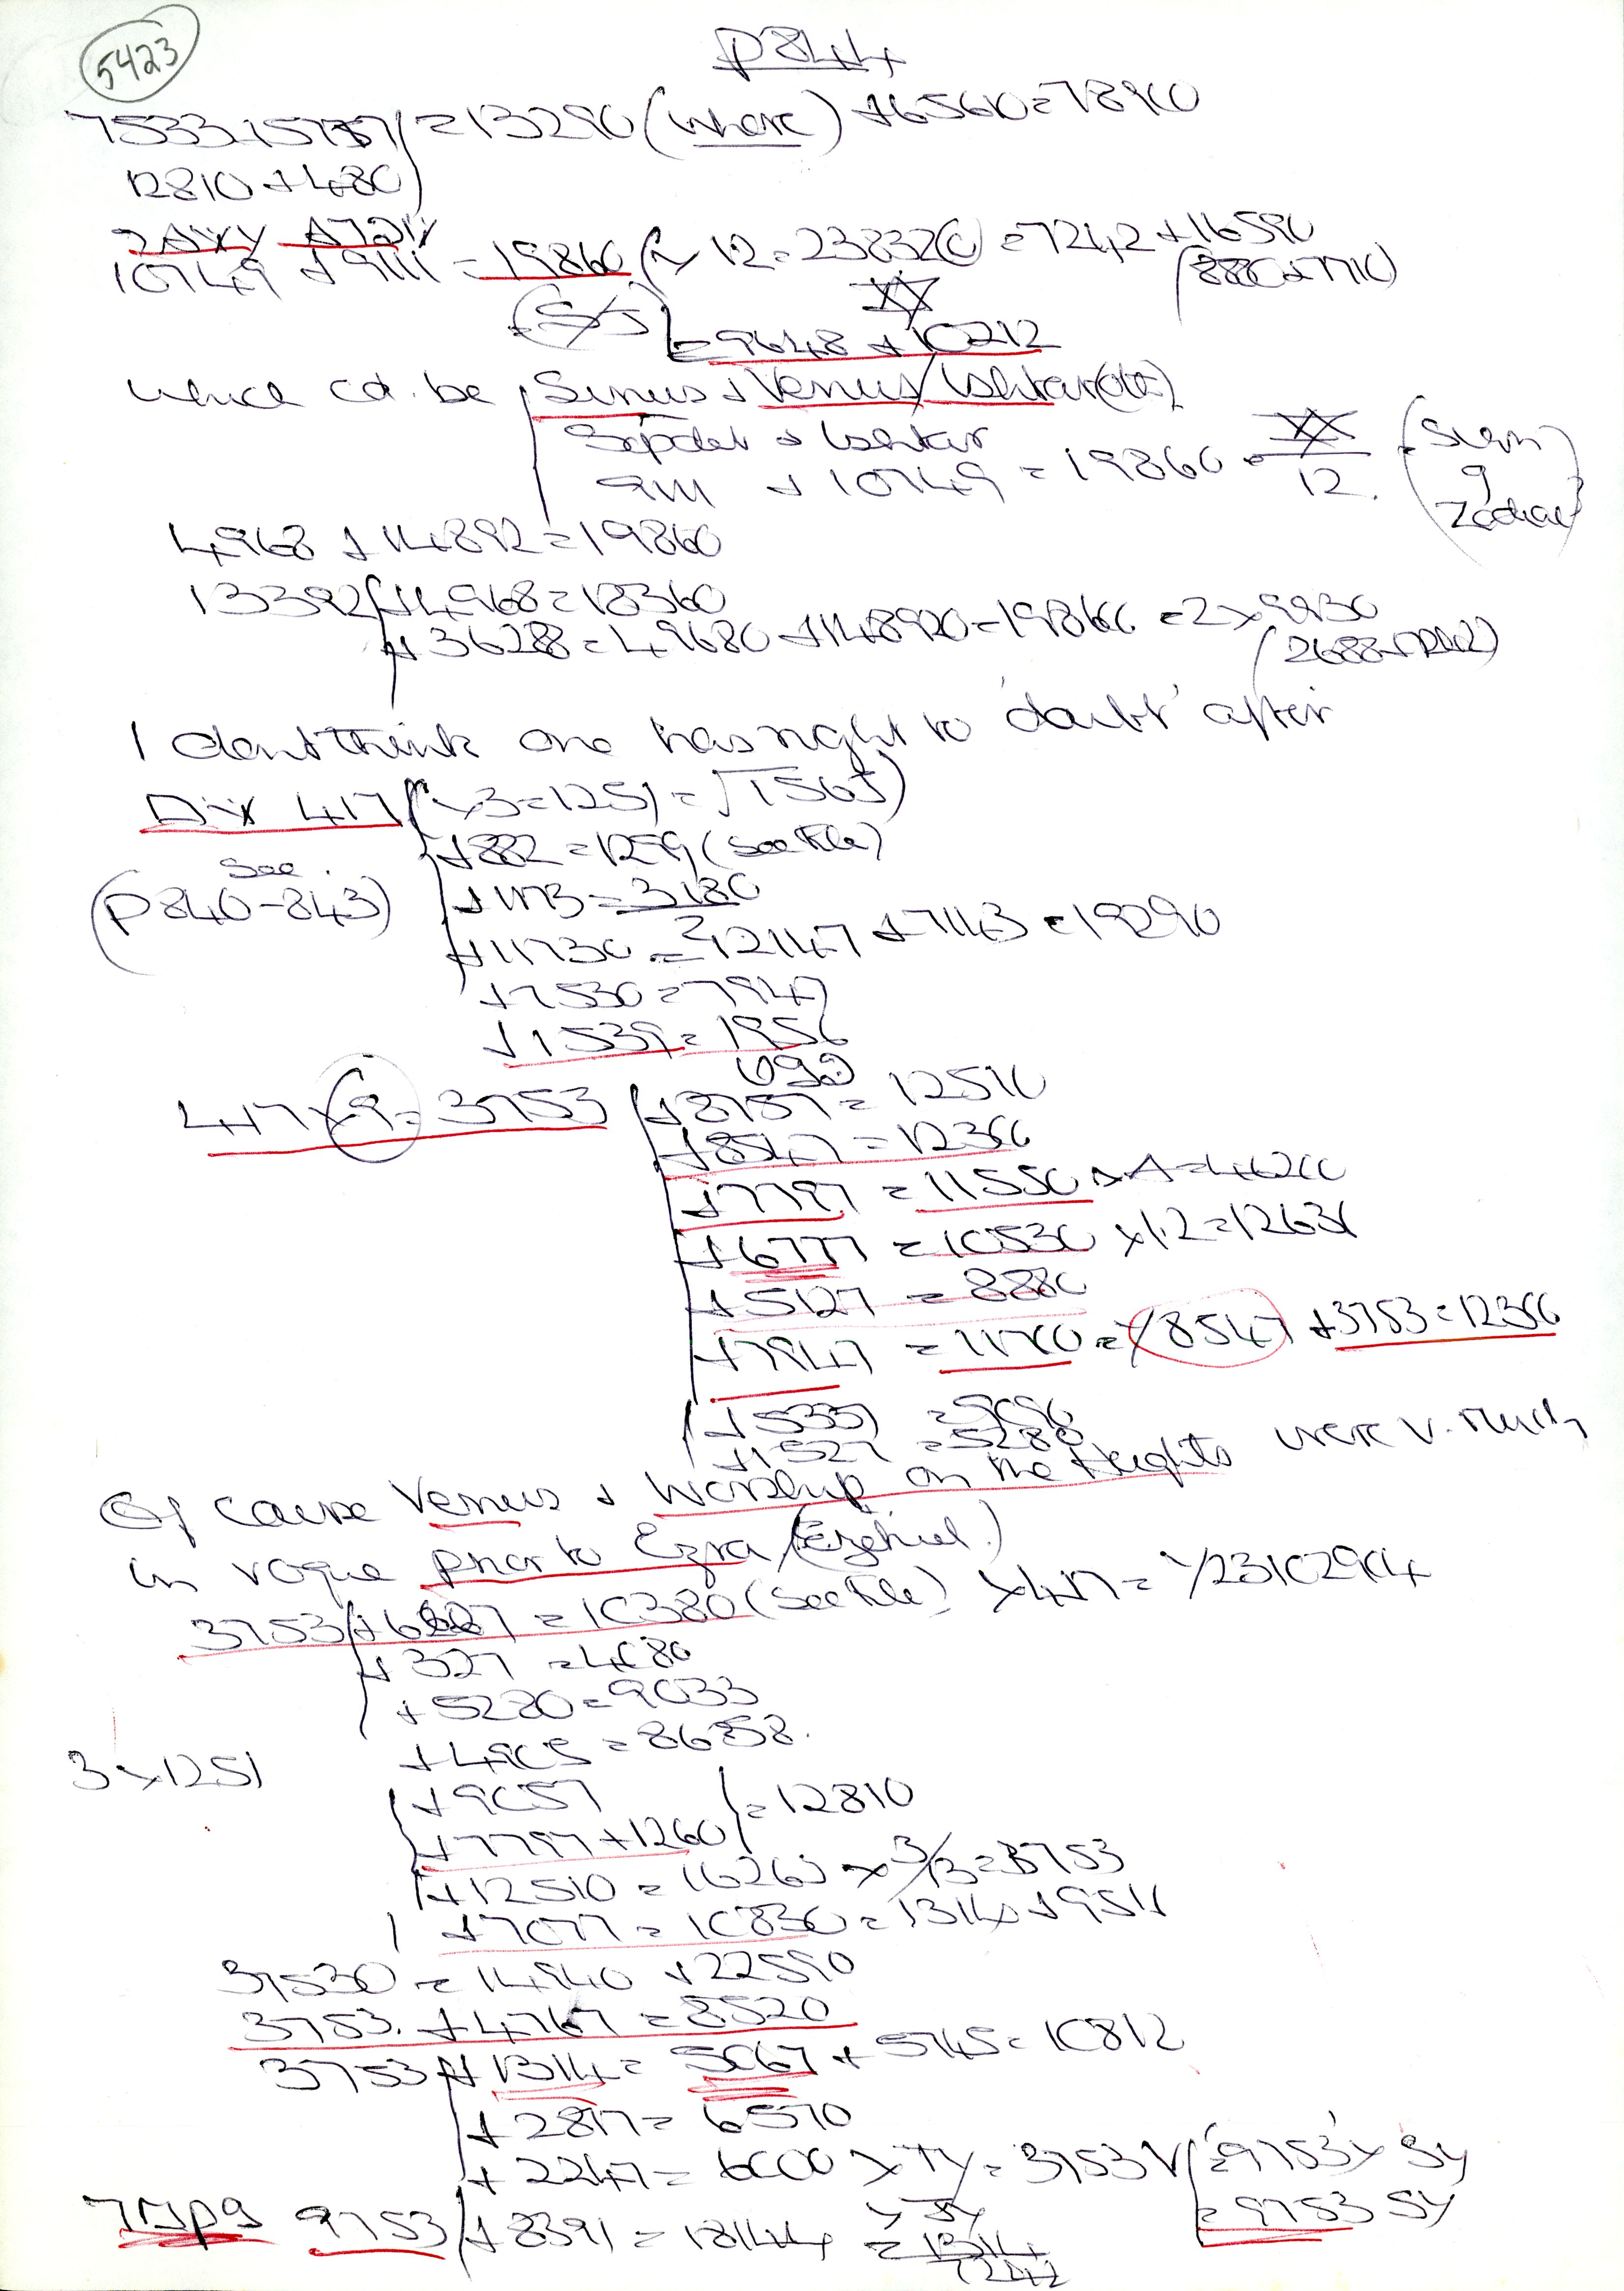 5423
P844
7533+5757 = 13290 (where) + 65610 = 78900
12810 + 480
10749 + 9111 = 19860 (x 12 = 238320) = 7242 + 16590
(8880 + 7710)
= 9648 + 10212
which cd. be Sirius + Venus/Ishtar
Sepdet + Ishtar
9111 + 10749 = 19860 = 12. (Sign of Zodiac)
4968 + 14892 = 19860
13392 + 4968 = 18360
+ 36288 = 49680 + 148920 = 198600 = 2 x 9930
(2688 + 7242)
I dont think one has right to 'doubt' after
417 (x 3 = 1251 = √1565)
+ 882 = 1299 (see File)
See (P840-843)
+ 1173 = 3180/2
+ 11730 = 12147 + 7143 = 19290
+ 7530 = 7947
+ 1539 = 1956
417 x 9 = 3753
+ 8757 = 12510
+ 8547 = 12300
+ 7797 = 11550 x 4 = 46200
+ 6777 = 10530 x 1.2 = 12636
+ 5127 = 8880
+ 7947 = 11700 = 8547 + 3753 = 12300
+ 5337 = 9090
+ 1527 = 5280
Of cause Venus + Worship on the Heights were v. much
in vogue prior to Ezra/(Ezekiel.)
3753 + 6627 = 10380 (see File) x 417 =
+ 327 = 4080
+ 5280 = 9033
+ 4905 = 8658.
3 x 1251
+ 9057
+ 7797 + 1260 = 12810
+ 12510 = 16263 x 3/13 = 3753
+ 7077 = 10830 = 1314 + 9516
37530 = 14940 + 22590
3753. + 4767 = 8520
3753 + 1314 = 5067 + 5745 = 10812
+ 2817 = 6570
+ 2247 = 6000 x TY = 3753 V = '9753' x SY
= 9753 SY
9753 + 8391 = 18144 x SY
= 1314
7242